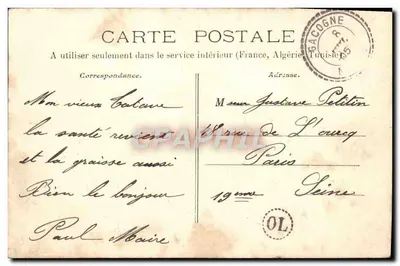 CARTE POSTALE
A utiliser seulement dans le service intérieur (France, Algérie, Tunisie)
Correspondance.
Adresse.
GACOGNE
6
05
Mon vieux
la santé revient
et la graisse aussi
Bien le bonjour
Paul Maire
Msieur Gustave Petitin
rue de L'ourcq
Paris
19eme Seine
OL
CPRAMA